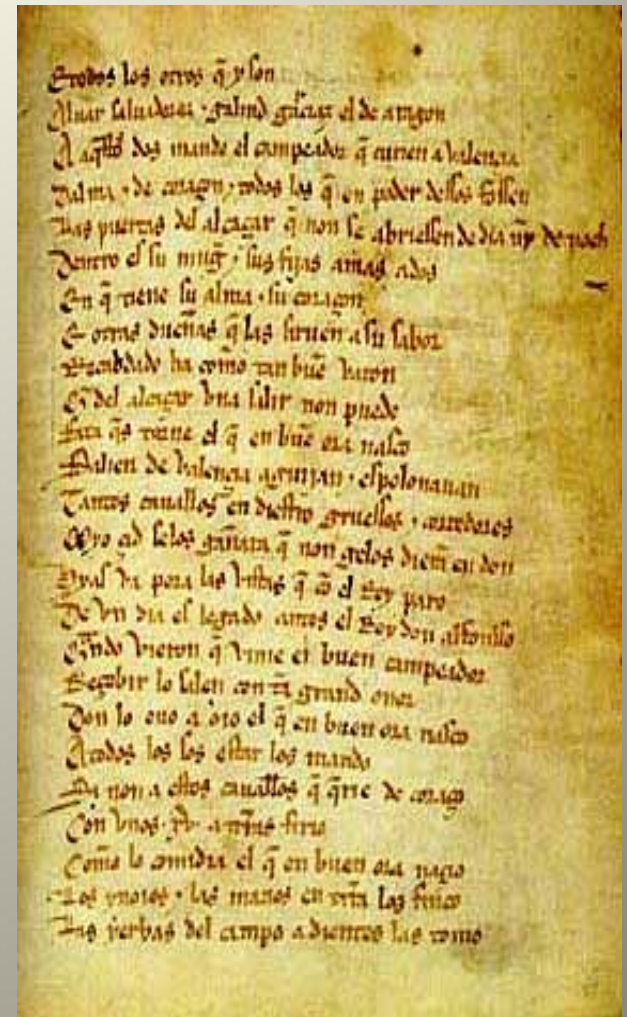 E todos los otros q̃ y son
Aluar saluadorez ⁊ galind garciaz el de aragon
A aq̃stos dos mando el campeador q̃ curien a valencia
Dalma ⁊ de coraçon ⁊ todos los q̃ en poder dessos fossen
Las puertas del alcaçar q̃ non se abriessen de dia nȳ de noch
Dentro es su mug̃ ⁊ sus fijas amas ados
En q̃ tiene su alma ⁊ su coraçon
E otras dueñas q̃ las siruen a su sabor
Recabdado ha como tan buẽ varon
Q̃ del alcaçar vna salir non puede
Fata q̃s torne el q̃ en buẽ ora nasco
Salien de valencia aguijan ⁊ espolonauan
Tantos cauallos en diestro gruessos ⁊ corredores
Myo çid selos gañara q̃ non gelos dierã en don
Hyas va pora las vistas q̃ cõ el Rey paro
De vn dia es legado antes el Rey don alfonsso
Q̃ndo vieron q̃ vinie el buen campeador
Reçebir lo salen con tã grand onor
Don lo ouo a oio el q̃ en buen ora nasco
A todos los sos estar los mando
Si non a estos cauallos q̃ q̃rie de coraçõ
Con vnos .xv. a tr̃ras firio
Como lo comidia el q̃ en buen ora naçio
Los ynoios ⁊ las manos en tr̃ra los finco
Las yerbas del campo a dientes las tomo